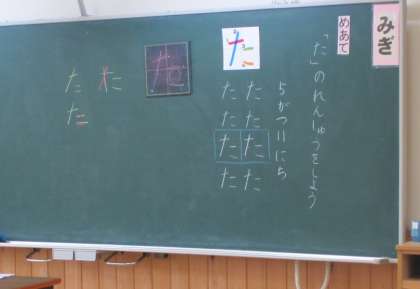 みぎ
めあて
「た」のれんしゅうをしよう
5がつ11にち
た
た た
た た
た た
た た
た
た た
た